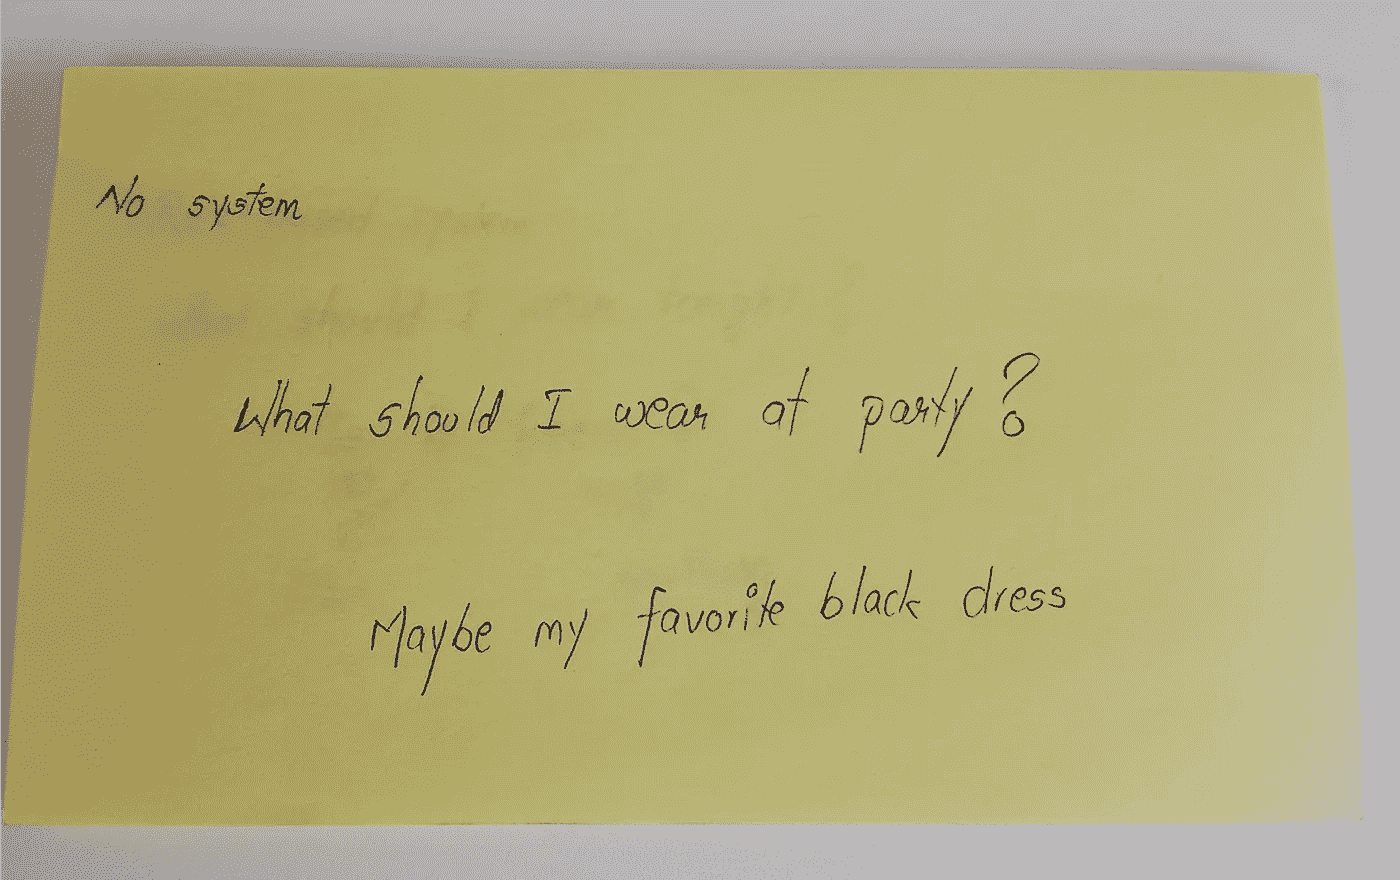 No system
What should I wear at party?
Maybe my favorite black dress